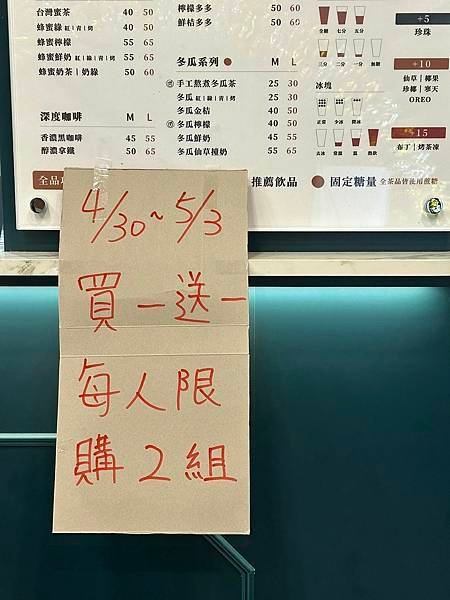 台灣蜜茶 40 50
蜂蜜綠 紅|青|烤 40 50
蜂蜜檸檬 55 65
蜂蜜鮮奶 紅|綠|青|烤 55 65
蜂蜜奶茶|奶綠 50 60
深度咖啡 M L
香濃黑咖啡 45 55
醇濃拿鐵 50 65
檸檬多多 50 60
鮮桔多多 50 60
冬瓜系列 M L
手工熬煮冬瓜茶 25 30
冬瓜 紅|綠|青|烤 25 30
冬瓜金桔 40 50
冬瓜檸檬 40 50
冬瓜鮮奶 45 55
冬瓜仙草撞奶 55 65
全糖 七分 五分
三分 二分 一分 無糖
冰塊
正常 少冰 微冰
去冰 常溫 溫 熱飲
+5
珍珠
+10
仙草|椰果
珍椰|寒天
OREO
+15
布丁|烤茶凍
全品項
推薦飲品
固定糖量
全茶品皆使用蔗糖
4/30~5/3
買一送一
每人限
購2組